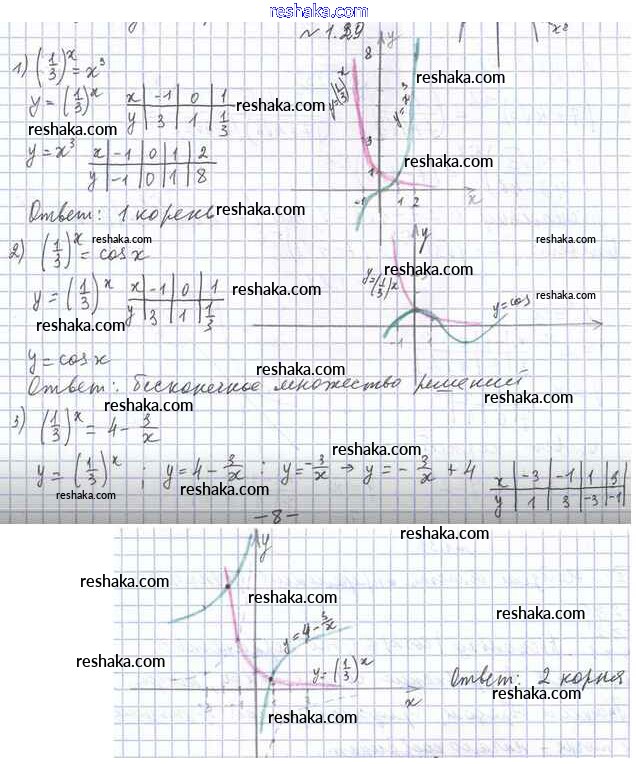 reshaka.com
№ 1.29
1) (1/3)^x = x^3
y = (1/3)^x
x | -1 | 0 | 1
y | 3 | 1 | 1/3
reshaka.com
y = x^3
x | -1 | 0 | 1 | 2
y | -1 | 0 | 1 | 8
reshaka.com
Ответ: 1 корень
reshaka.com
y
8
3
1
-1
1
2
x
y=(1/3)^x
y=x^3
reshaka.com
reshaka.com
reshaka.com
2) (1/3)^x = cos x
reshaka.com
y = (1/3)^x
x | -1 | 0 | 1
y | 3 | 1 | 1/3
reshaka.com
reshaka.com
y = cos x
y
y=(1/3)^x
y=cos
-1
1
reshaka.com
reshaka.com
reshaka.com
Ответ: бесконечное множество решений
reshaka.com
reshaka.com
3) (1/3)^x = 4 - 3/x
reshaka.com
y = (1/3)^x ; y = 4 - 3/x : y = -3/x → y = -3/x + 4
x | -3 | -1 | 1 | 3
y | 1 | 3 | -3 | -1
reshaka.com
reshaka.com
-8-
y
reshaka.com
reshaka.com
reshaka.com
reshaka.com
y=4-3/x
y=(1/3)^x
-3
-1
1
3
x
reshaka.com
Ответ: 2 корня
reshaka.com
reshaka.com